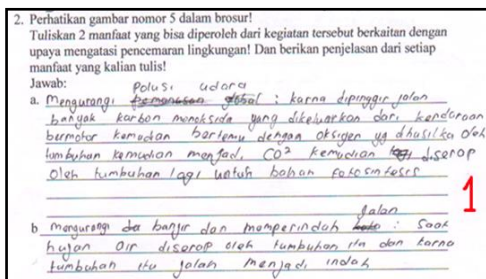 2. Perhatikan gambar nomor 5 dalam brosur!
Tuliskan 2 manfaat yang bisa diperoleh dari kegiatan tersebut berkaitan dengan
upaya mengatasi pencemaran lingkungan! Dan berikan penjelasan dari setiap
manfaat yang kalian tulis!
Jawab:
polusi udara
a. Mengurangi pemanasan global : karna dipinggir jalan
banyak karbon monoksida yang dikeluarkan dari kendaraan
bermotor kemudian bertemu dengan oksigen yg dhasilka oleh
tumbuhan kemudian menjadi CO² kemudian lagi diserap
oleh tumbuhan lagi untuk bahan fotosintesis
1
jalan
b mengurangi banjir dan memperindah : saat
hujan air diserap oleh tumbuhan itu dan karna
tumbuhan itu jalan menjadi indah